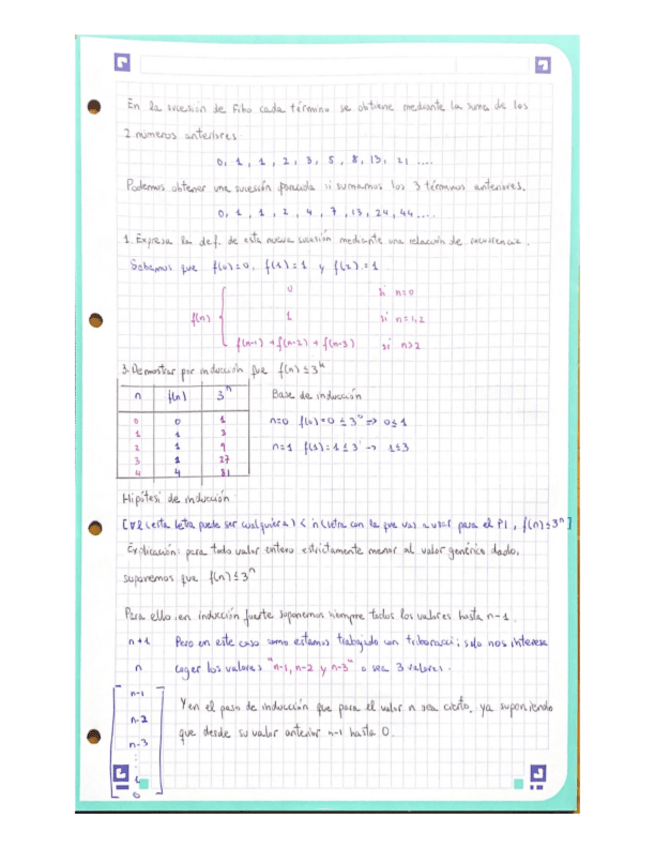 En la sucesión de Fibo cada término se obtiene mediante la suma de los
2 numeros anteriores
0, 1, 1, 2, 3, 5, 8, 13, 21 ....
Podemos obtener una sucesión parecida si sumamos los 3 términos anteriores.
0, 1, 1, 2, 4, 7, 13, 24, 44 ....
1. Expresa la def. de esta nueva sucesión mediante una relación de recurrencia.
Sabemos que f(0)=0, f(1)=1 y f(2)=1
0 si n=0
f(n) { 1 si n=1,2
f(n-1) + f(n-2) + f(n-3) si n>2
3. Demostrar por inducción que f(n) ≤ 3^n
n f(n) 3^n
0 0 1
1 1 3
2 1 9
3 2 27
4 4 81
Base de inducción
n=0 f(0)=0 ≤ 3^0 => 0≤1
n=1 f(1)=1 ≤ 3^1 -> 1≤3
Hipótesi de inducción
[∀ℓ (esta letra puede ser cualquiera) < n (letra con la que vas a usar para el PI, f(n)≤3^n]
Explicación: para todo valor entero estrictamente menor al valor genérico dado,
suponemos que f(n) ≤ 3^n
Para ello en inducción fuerte suponemos siempre todos los valores hasta n-1.
n+1 Pero en este caso como estamos trabajado con tribonacci; solo nos interesa
n coger los valores "n-1, n-2 y n-3" o sea 3 valores.
n-1
n-2
n-3
⋮
1
0
Y en el paso de inducción que para el valor n sea cierto, ya suponiendo
que desde su valor anterior n-1 hasta 0.